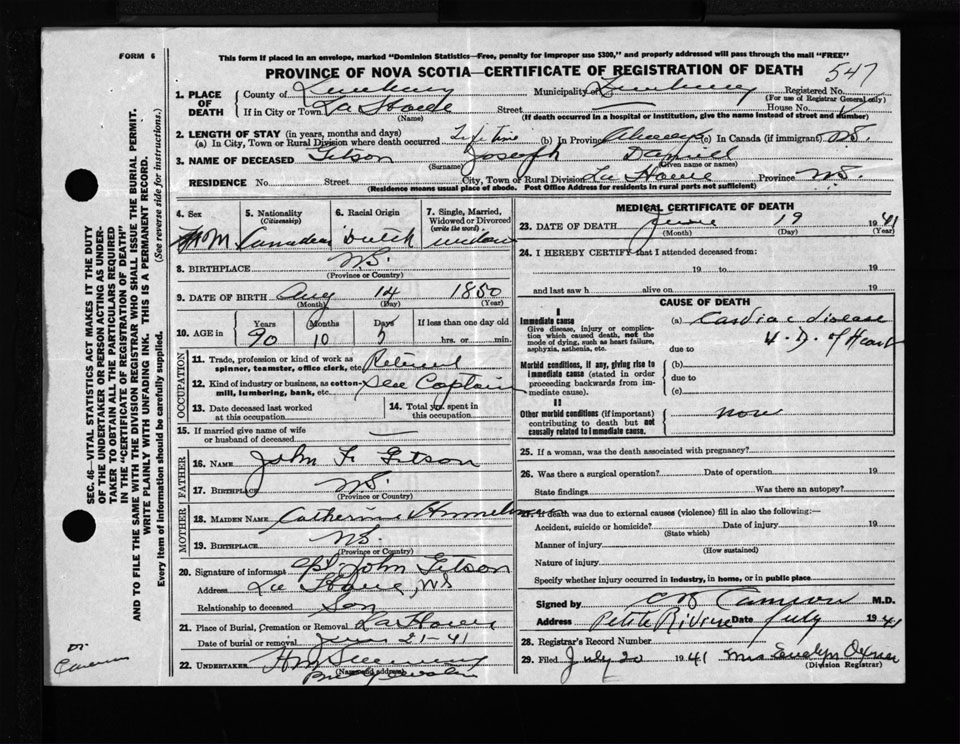 FORM 6
This form if placed in an envelope, marked "Dominion Statistics—Free, penalty for improper use $300," and properly addressed will pass through the mail "FREE"
PROVINCE OF NOVA SCOTIA—CERTIFICATE OF REGISTRATION OF DEATH 547
1. PLACE OF DEATH
County of Lunenburg Municipality of Lunenburg Registered No.
(For use of Registrar General only)
If in City or Town La Have Street House No.
(Name) (If death occurred in a hospital or institution, give the name instead of street and number)
2. LENGTH OF STAY (in years, months and days)
(a) In City, Town or Rural Division where death occurred Life time (b) In Province Always (c) In Canada (if immigrant)
3. NAME OF DECEASED Getson Joseph Daniel
(Surname) (Given name or names)
RESIDENCE No. Street City, Town or Rural Division La Have Province N.S.
(Residence means usual place of abode. Post Office Address for residents in rural parts not sufficient)
4. Sex M
5. Nationality (Citizenship) Canadian
6. Racial Origin Dutch
7. Single, Married, Widowed or Divorced (write the word) widow
8. BIRTHPLACE N.S.
(Province or Country)
9. DATE OF BIRTH Aug 14 1850
(Month) (Day) (Year)
10. AGE in Years Months Days If less than one day old
90 10 5 hrs. or min.
OCCUPATION
11. Trade, profession or kind of work as spinner, teamster, office clerk, etc. Retired
12. Kind of industry or business, as cotton-mill, lumbering, bank, etc. Sea Captain
13. Date deceased last worked at this occupation
14. Total yrs. spent in this occupation
15. If married give name of wife or husband of deceased —
FATHER
16. NAME John F. Getson
17. BIRTHPLACE N.S.
(Province or Country)
MOTHER
18. MAIDEN NAME Catherine
19. BIRTHPLACE N.S.
(Province or Country)
20. Signature of informant Capt John Getson
Address La Have, NS
Relationship to deceased Son
21. Place of Burial, Cremation or Removal La Have
Date of burial or removal June 21-41
22. UNDERTAKER
(Name and address)
MEDICAL CERTIFICATE OF DEATH
23. DATE OF DEATH June 19 1941
(Month) (Day) (Year)
24. I HEREBY CERTIFY that I attended deceased from:
19 to 19
and last saw h alive on 19
CAUSE OF DEATH
I
Immediate cause
Give disease, injury or complication which caused death, not the mode of dying, such as heart failure, asphyxia, asthenia, etc.
(a) Cardiac disease
V. D. of Heart
due to
Morbid conditions, if any, giving rise to immediate cause (stated in order proceeding backwards from immediate cause).
(b)
due to
(c)
II
Other morbid conditions (if important) contributing to death but not causally related to immediate cause.
none
25. If a woman, was the death associated with pregnancy?
26. Was there a surgical operation? Date of operation 19
State findings Was there an autopsy?
27. If death was due to external causes (violence) fill in also the following:—
Accident, suicide or homicide? Date of injury 19
(State which)
Manner of injury
(How sustained)
Nature of injury
Specify whether injury occurred in industry, in home, or in public place
Signed by Cameron M.D.
Address Petite Riviere Date July 1941
28. Registrar's Record Number
29. Filed July 20 1941 Mrs Evelyn Oxner
(Division Registrar)
SEC. 46—VITAL STATISTICS ACT MAKES IT THE DUTY
OF THE UNDERTAKER OR PERSON ACTING AS UNDERTAKER
TO OBTAIN ALL THE PARTICULARS REQUIRED
IN THE "CERTIFICATE OF REGISTRATION OF DEATH"
AND TO FILE THE SAME WITH THE DIVISION REGISTRAR WHO SHALL ISSUE THE BURIAL PERMIT.
WRITE PLAINLY WITH UNFADING INK. THIS IS A PERMANENT RECORD.
Every item of information should be carefully supplied. (See reverse side for instructions.)
Dr.
Cameron